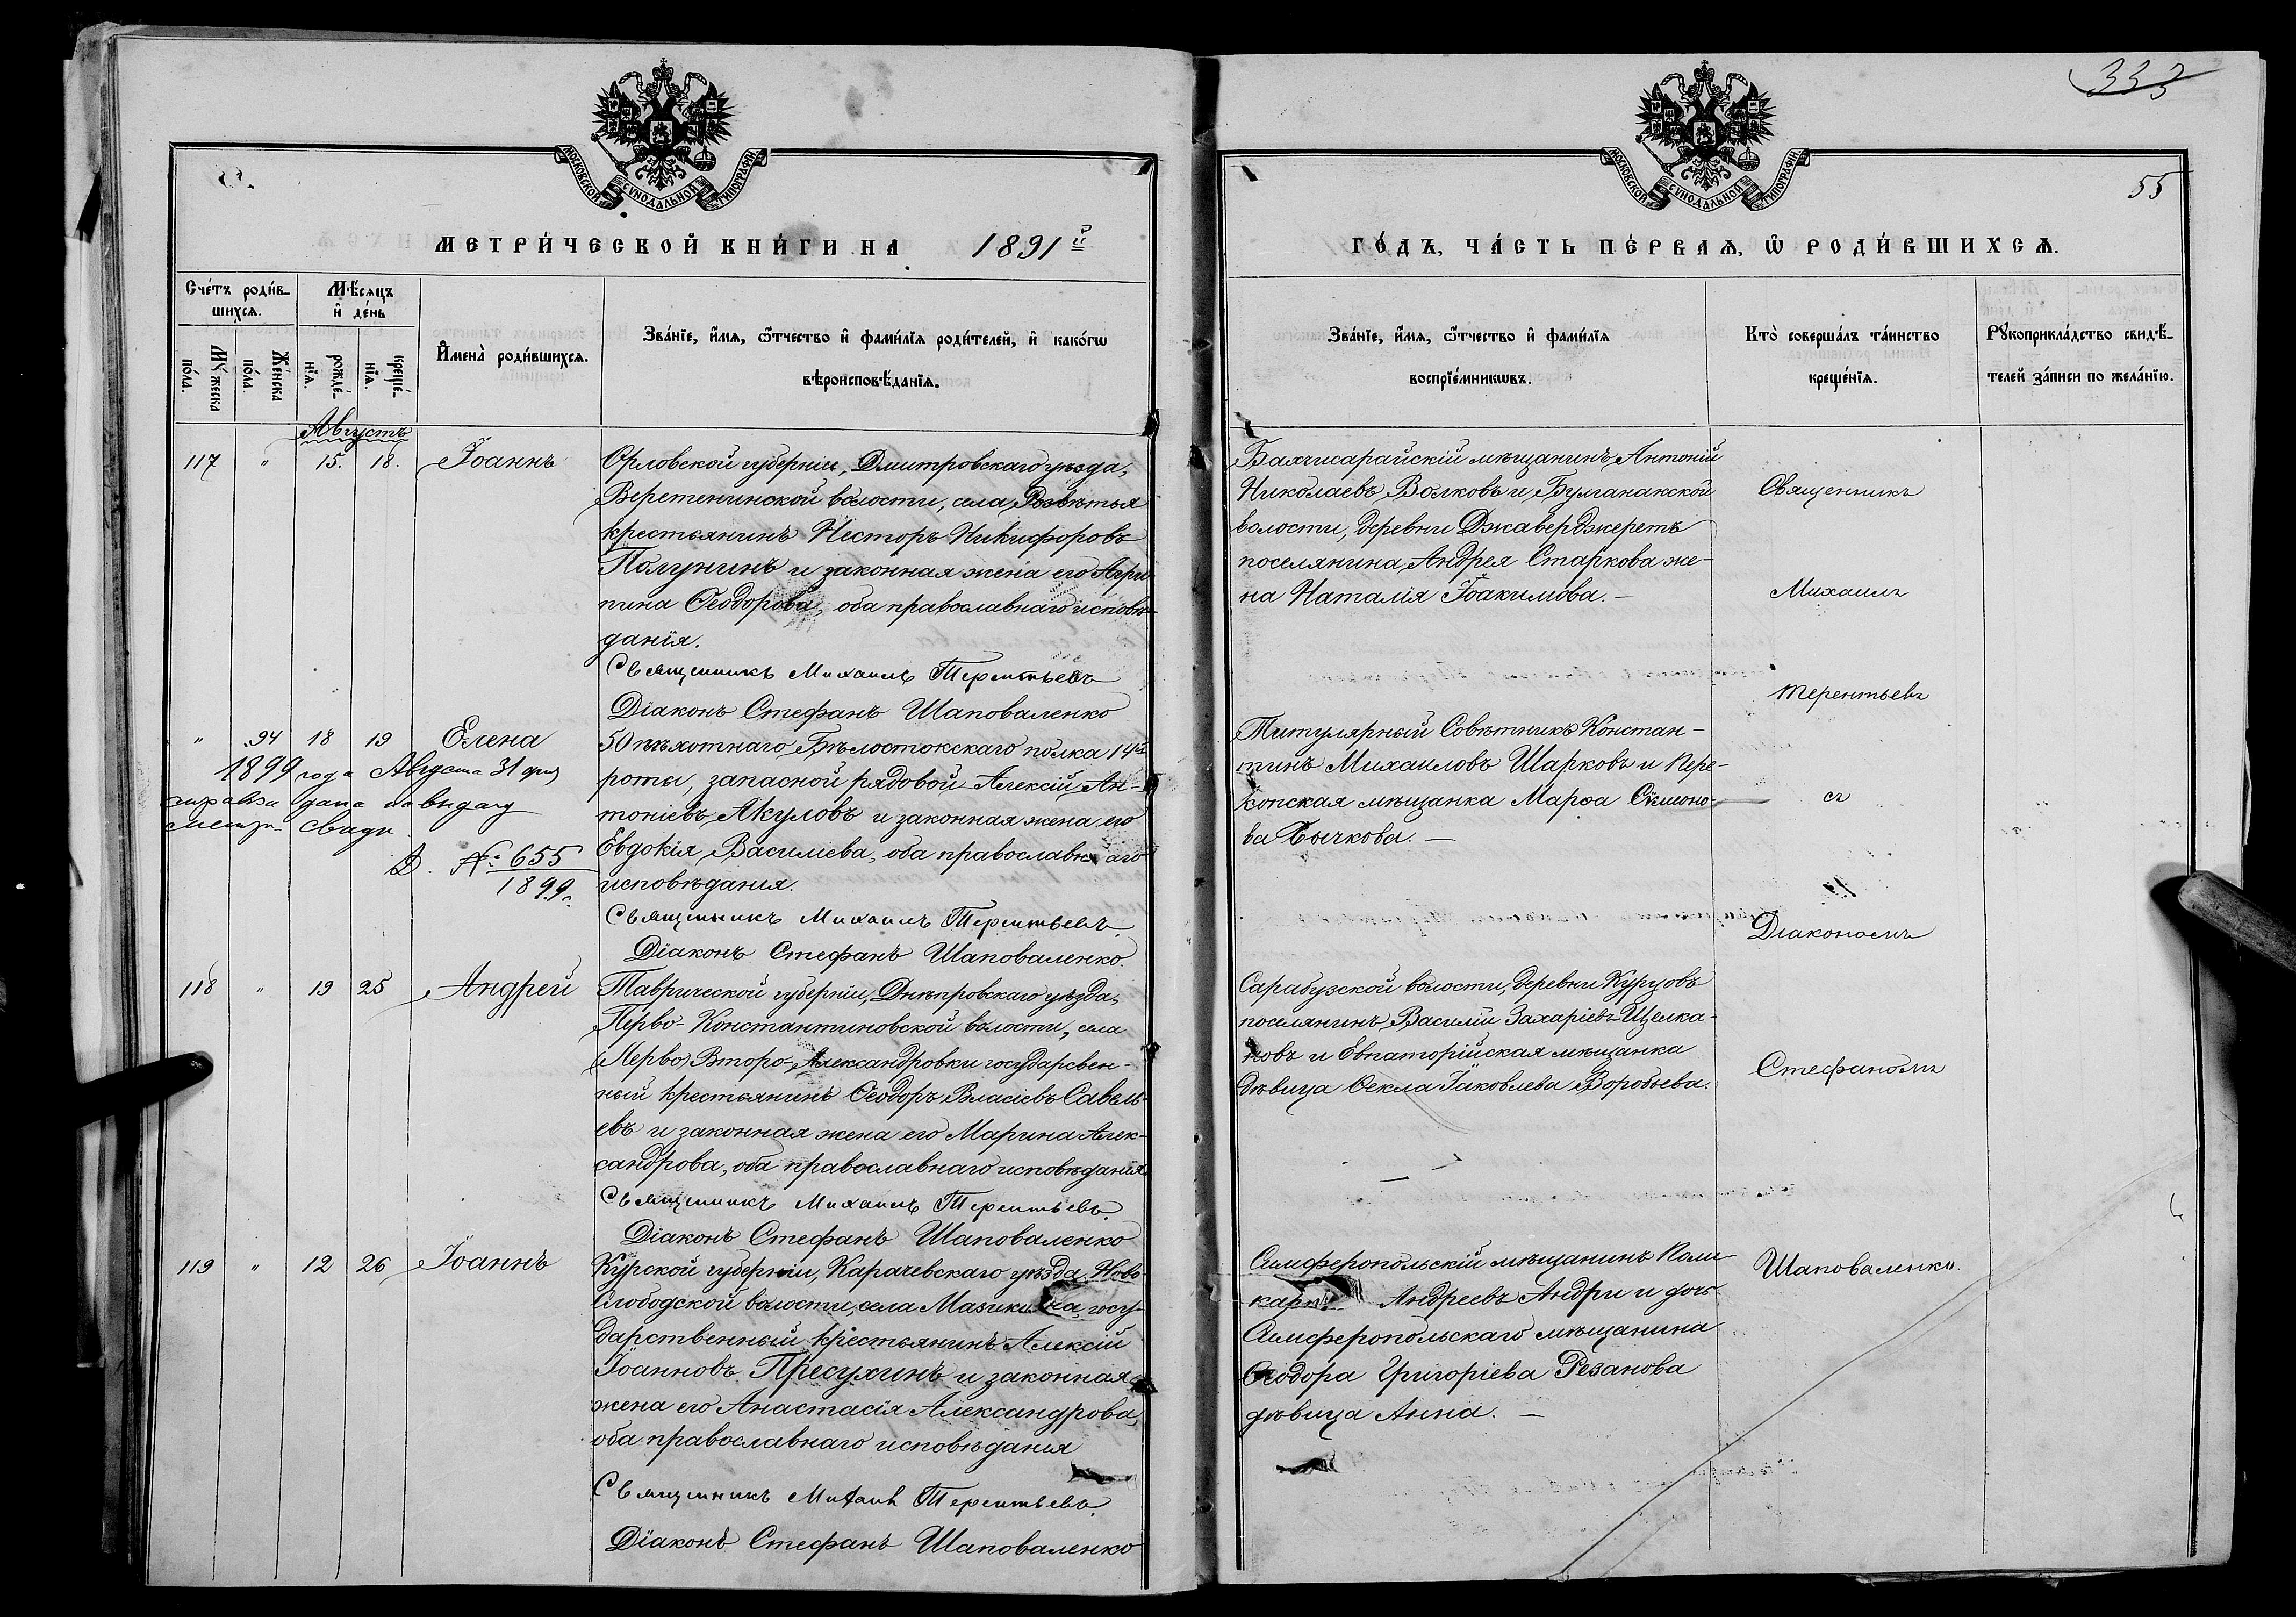 333
55
МОСКОВСКОЙ СѴНОДАЛЬНОЙ ТИПОГРАФІИ
МОСКОВСКОЙ СѴНОДАЛЬНОЙ ТИПОГРАФІИ
МЕТРИ́ЧЕСКОЙ КНИ́ГИ НА 1891й
ГО́ДЪ, ЧА́СТЬ ПЕ́РВАѦ, Ѡ РОДИ́ВШИХСѦ.
Сче́тъ роди́в-
шихсѧ.
Мꙋжеска по́ла.
Же́нска по́ла.
Мѣ́сѧцъ
и҆ де́нь
рожде́-
нїѧ.
креще́-
нїѧ.
И҆мена̀ роди́вшихсѧ.
Зва́нїе, и҆́мѧ, ѻ҆́тчество и҆ фами́лїѧ роди́телей, и҆ како́гѡ
вѣроисповѣ́данїѧ.
Зва́нїе, и҆́мѧ, ѻ҆́тчество и҆ фами́лїѧ
воспрїе́мникѡвъ.
Кто̀ соверша́лъ та́инство
креще́нїѧ.
Рꙋкоприкла́дство свидѣ́-
телей за́писи по жела́нїю.
Августъ
117 " 15. 18. Іоаннъ
Орловской губерніи, Дмитровскаго уѣзда,
Веретенинской волости, села Розвѣтья
крестьянинъ Несторъ Никифоровъ
Полунинъ и законная жена его Агри
пина Ѳеодорова, оба православнаго исповѣ-
данія.
Священникъ Михаилъ Терентьевъ
Діаконъ Стефанъ Шаповаленко
Бахчисарайскій мѣщанинъ Антоній
Николаевъ Волковъ и Булганакской
волости, деревни Джаверджеретъ
поселянина Андрея Старкова же-
на Наталія Іоакимова. —
Священникъ
Михаилъ
Терентьевъ
" 94 18 19 Елена
1899 года Августа 31 дня
справка дана на выдачу
метр. свидѣ.
Д. № 655
1899 г.
50 пѣхотнаго Бѣлостокскаго полка 14й
роты, запасной рядовой Алексій Ан-
тоніевъ Акуловъ и законная жена его
Евдокія Василіева, оба православнаго
исповѣданія.
Священникъ Михаилъ Терентьевъ.
Діаконъ Стефанъ Шаповаленко.
Титулярный Совѣтникъ Констан-
тинъ Михаиловъ Шарковъ и Пере-
копская мѣщанка Марѳа Симеоно-
ва Бычкова. —
съ
Діакономъ
118 " 19 25 Андрей
Таврической губерніи, Днѣпровскаго уѣзда,
Перво-Константиновской волости, села
(Перво) Второ-Александровки государсвен-
ный крестьянинъ Ѳеодоръ Власіевъ Савель-
евъ и законная жена его Марина Алек-
сандрова, оба православнаго исповѣданія
Священникъ Михаилъ Терентьевъ.
Діаконъ Стефанъ Шаповаленко
Сарабузской волости, деревни Курцовъ
поселянинъ Василій Захаріевъ Щелка-
новъ и Евпаторійская мѣщанка
дѣвица Ѳекла Іаковлева Воробьева.
Стефаномъ
119 " 12 26 Іоаннъ
Курской губерніи, Карачевскаго уѣзда, Ново-
Слободской волости, села Мазикина, госу-
дарственный крестьянинъ Алексій
Іоанновъ Пресухинъ и законная
жена его Анастасія Александрова,
оба православнаго исповѣданія
Священникъ Михаилъ Терентьевъ.
Діаконъ Стефанъ Шаповаленко
Симферопольскій мѣщанинъ Поли-
карпъ Андреевъ Андри и дочь
Симферопольскаго мѣщанина
Ѳеодора Григоріева Резанова
дѣвица Анна. —
Шаповаленко.